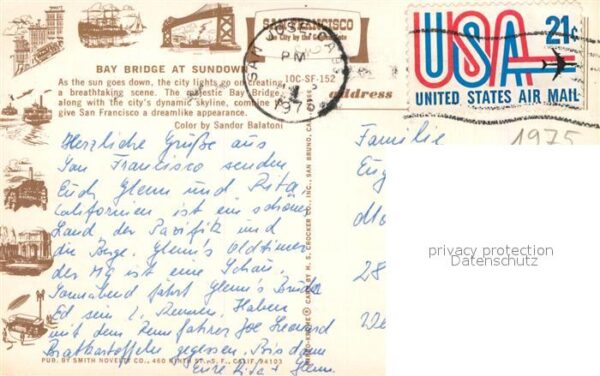 SAN FRANCISCO
The City by the Golden Gate
SAN JOSE CALIF
PM
197
USA 21¢
UNITED STATES AIR MAIL
BAY BRIDGE AT SUNDOWN
10C-SF-152
As the sun goes down, the city lights go on creating
a breathtaking scene. The majestic Bay Bridge,
along with the city's dynamic skyline, combine to
give San Francisco a dreamlike appearance.
Color by Sandor Balatoni
address
1975
Herzliche Grüße aus
San Francisco senden
Euch Glenn und Rita.
Californien ist ein schönes
Land, der Pacifik und
die Berge. Glenn's Oldtimer
der MG ist eine Schau.
Sonnabend fährt Glenn's Bruder
Ed sein 2. Rennen. Haben
mit dem Rennfahrer Joe Leonard
Bratkartoffeln gegessen. Bis dann
Eure Rita + Glenn
Familie
Eug
Mo
28
CARD BY H. S. CROCKER CO., INC., SAN BRUNO, CA
privacy protection
Datenschutz
PUB. BY SMITH NOVELTY CO., 460 NINTH ST., S. F., CALIF. 94103